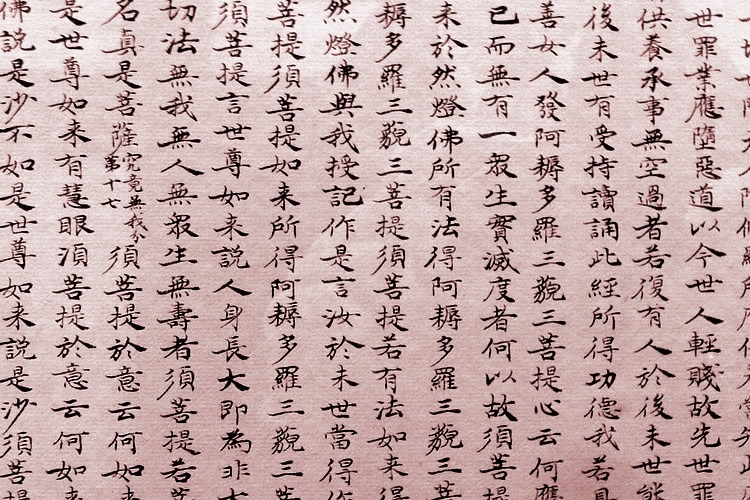 世罪業應墮惡道以今世人輕賤故先世罪
供養承事無空過者若復有人於後末世能
後末世有受持讀誦此經所得功德我若具
善女人發阿耨多羅三藐三菩提心云何應
已而無有一眾生實滅度者何以故須菩提
来於然燈佛所有法得阿耨多羅三藐三
耨多羅三藐三菩提須菩提若有法如来得
然燈佛與我授記作是言汝於未世當得作
菩提須菩提如来所得阿耨多羅三藐三
須菩提言世尊如来說人身長大即為非大
切法無我無人無眾生無壽者須菩提若
名真是菩薩究竟無我分第十七須菩提於意云何如
是世尊如来有慧眼須菩提於意云何如
佛說是沙不如是世尊如来說是沙須菩